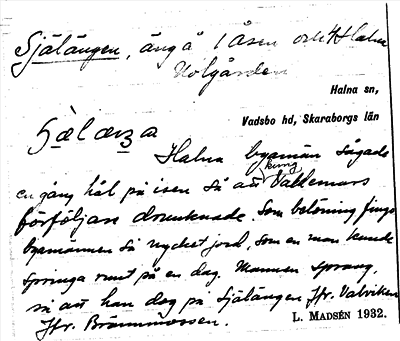 Själängen, äng å 1 Åsen och 4 Halna
Holgården
Halna sn,
Vadsbo hd, Skaraborgs län
Halna byamän sågade
en gång hål på isen så att kung Valdemars
förföljare drunknade. Som belöning fingo
byamännen så mycket jord, som en man kunde
springa runt på en dag. Mannen sprang,
så att han dog på Själängen. Jfr. Valviken
Jfr. Brännmossen.
L. MADSÉN 1932.